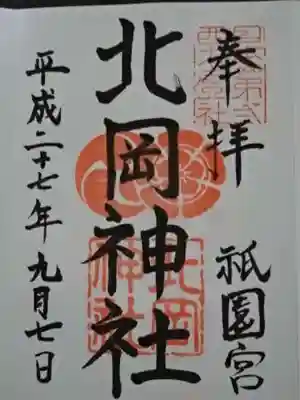 奉拝
祇園宮
北岡神社
平成二十七年九月七日
北岡
神社